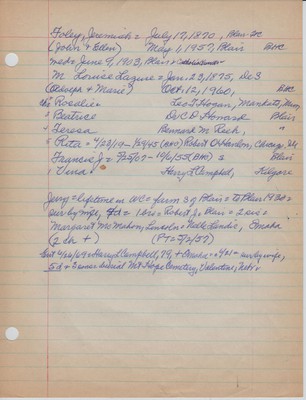 Foley, Jeremiah = July 17, 1870, Blair WC
(John & Ellen) May 1, 1957, Blair BVC
md = June 9, 1903, Blair =
M. Louise Lazure = Jan. 23, 1875, De3
(Adolph & Marie) Oct. 12, 1960, BVC
the Rosalie = Leo T Hogan, Manketo, Minn
" Beatrice Dr C D Howard Blair
" Teresa Bernard M. Rush, "
" Rita = 4/28/19- Robert O'Hanlon, Chicago,
Francis J = 7/25/07- 1/6/55 Blair
" Verna Harry L Campbell, Kilgore
Jerry = lifetime in WC = farm 3 of Blair = to Blair 1930 =
surv by wife, = 1 bro = Robert J, Blair = 2 sis =
Margaret McMahon, Lincoln = Nelle Landis, Omaha
(2 dh +) (PT= 5/2/57)
Ent 4/26/69 = Harry L Campbell, 79, + Omaha = surv by wife,
5 d = burial Mt Hope Cemetery, Valentine, Nebr